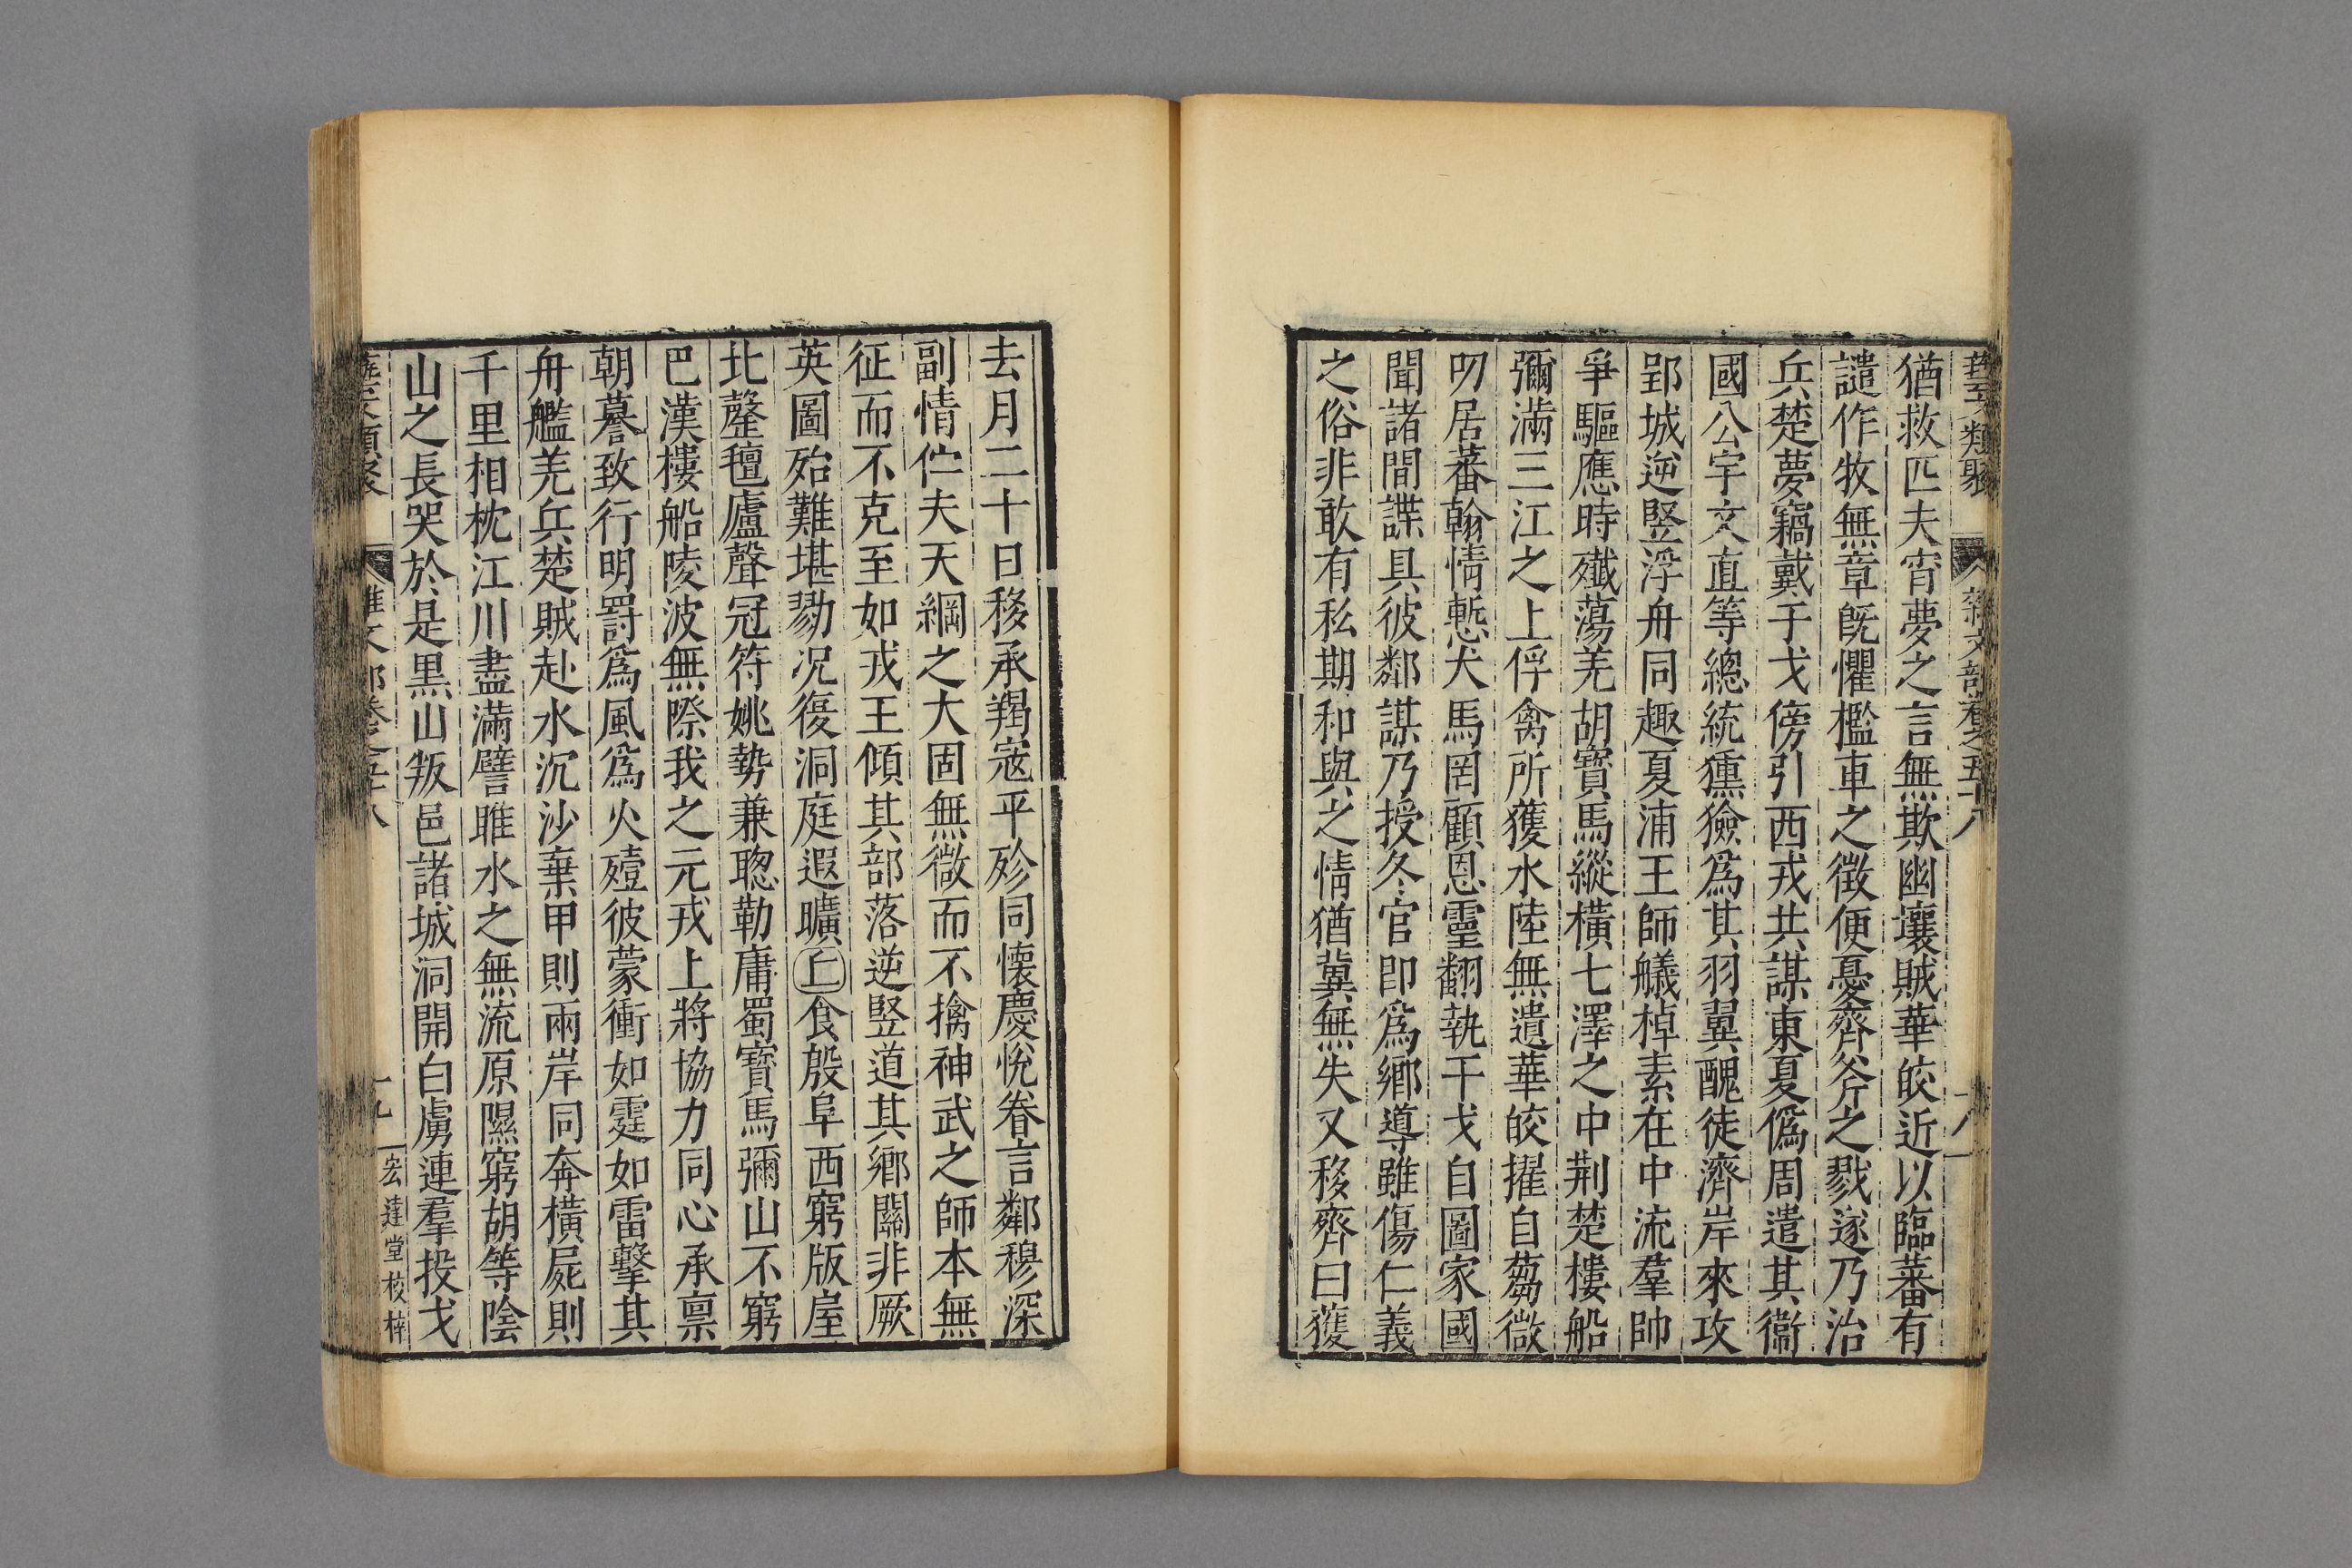 藝文類聚 雜文部卷之五十八 十八
猶救匹夫宵夢之言無欺幽壤賊華皎近以臨蕃有
譴作牧無章旣懼檻車之徵便憂齊斧之戮遂乃治
兵楚夢竊戴于戈傍引西戎共謀東夏僞周遣其衞
國公宇文直等總統獯獫爲其羽翼醜徒濟岸來攻
郢城逆竪浮舟同趣夏浦王師艤棹素在中流羣帥
爭驅應時殱蕩羌胡寳馬縱橫七澤之中荆楚樓船
彌滿三江之上俘禽所獲水陸無遺華皎擢自蒭微
叨居蕃翰情慙犬馬罔顧恩靈翻執干戈自圖家國
聞諸間諜具彼鄰謀乃授冬官卽爲鄉導雖傷仁義
之俗非敢有私期和與之情猶冀無失又移齊曰獲
去月二十日移承羯寇平殄同懷慶悅眷言鄰穆深
副情伫夫天綱之大固無微而不擒神武之師本無
征而不克至如戎王傾其部落逆竪道其鄉關非厥
英圖殆難堪勠况復洞庭遐曠丘食殷阜西窮版屋
北罄氊廬聲冠符姚勢兼聰勒庸蜀寳馬彌山不窮
巴漢樓船陵波無際我之元戎上將協力同心承禀
朝謩致行明罰爲風爲火殪彼蒙衝如霆如雷擊其
舟艦羌兵楚賊赴水沉沙棄甲則兩岸同奔橫屍則
千里相枕江川盡滿譬睢水之無流原隰窮胡等陰
山之長哭於是黒山叛邑諸城洞開白虜連羣投戈
藝文類聚 雜文部卷之五十八 十九 宏達堂校梓